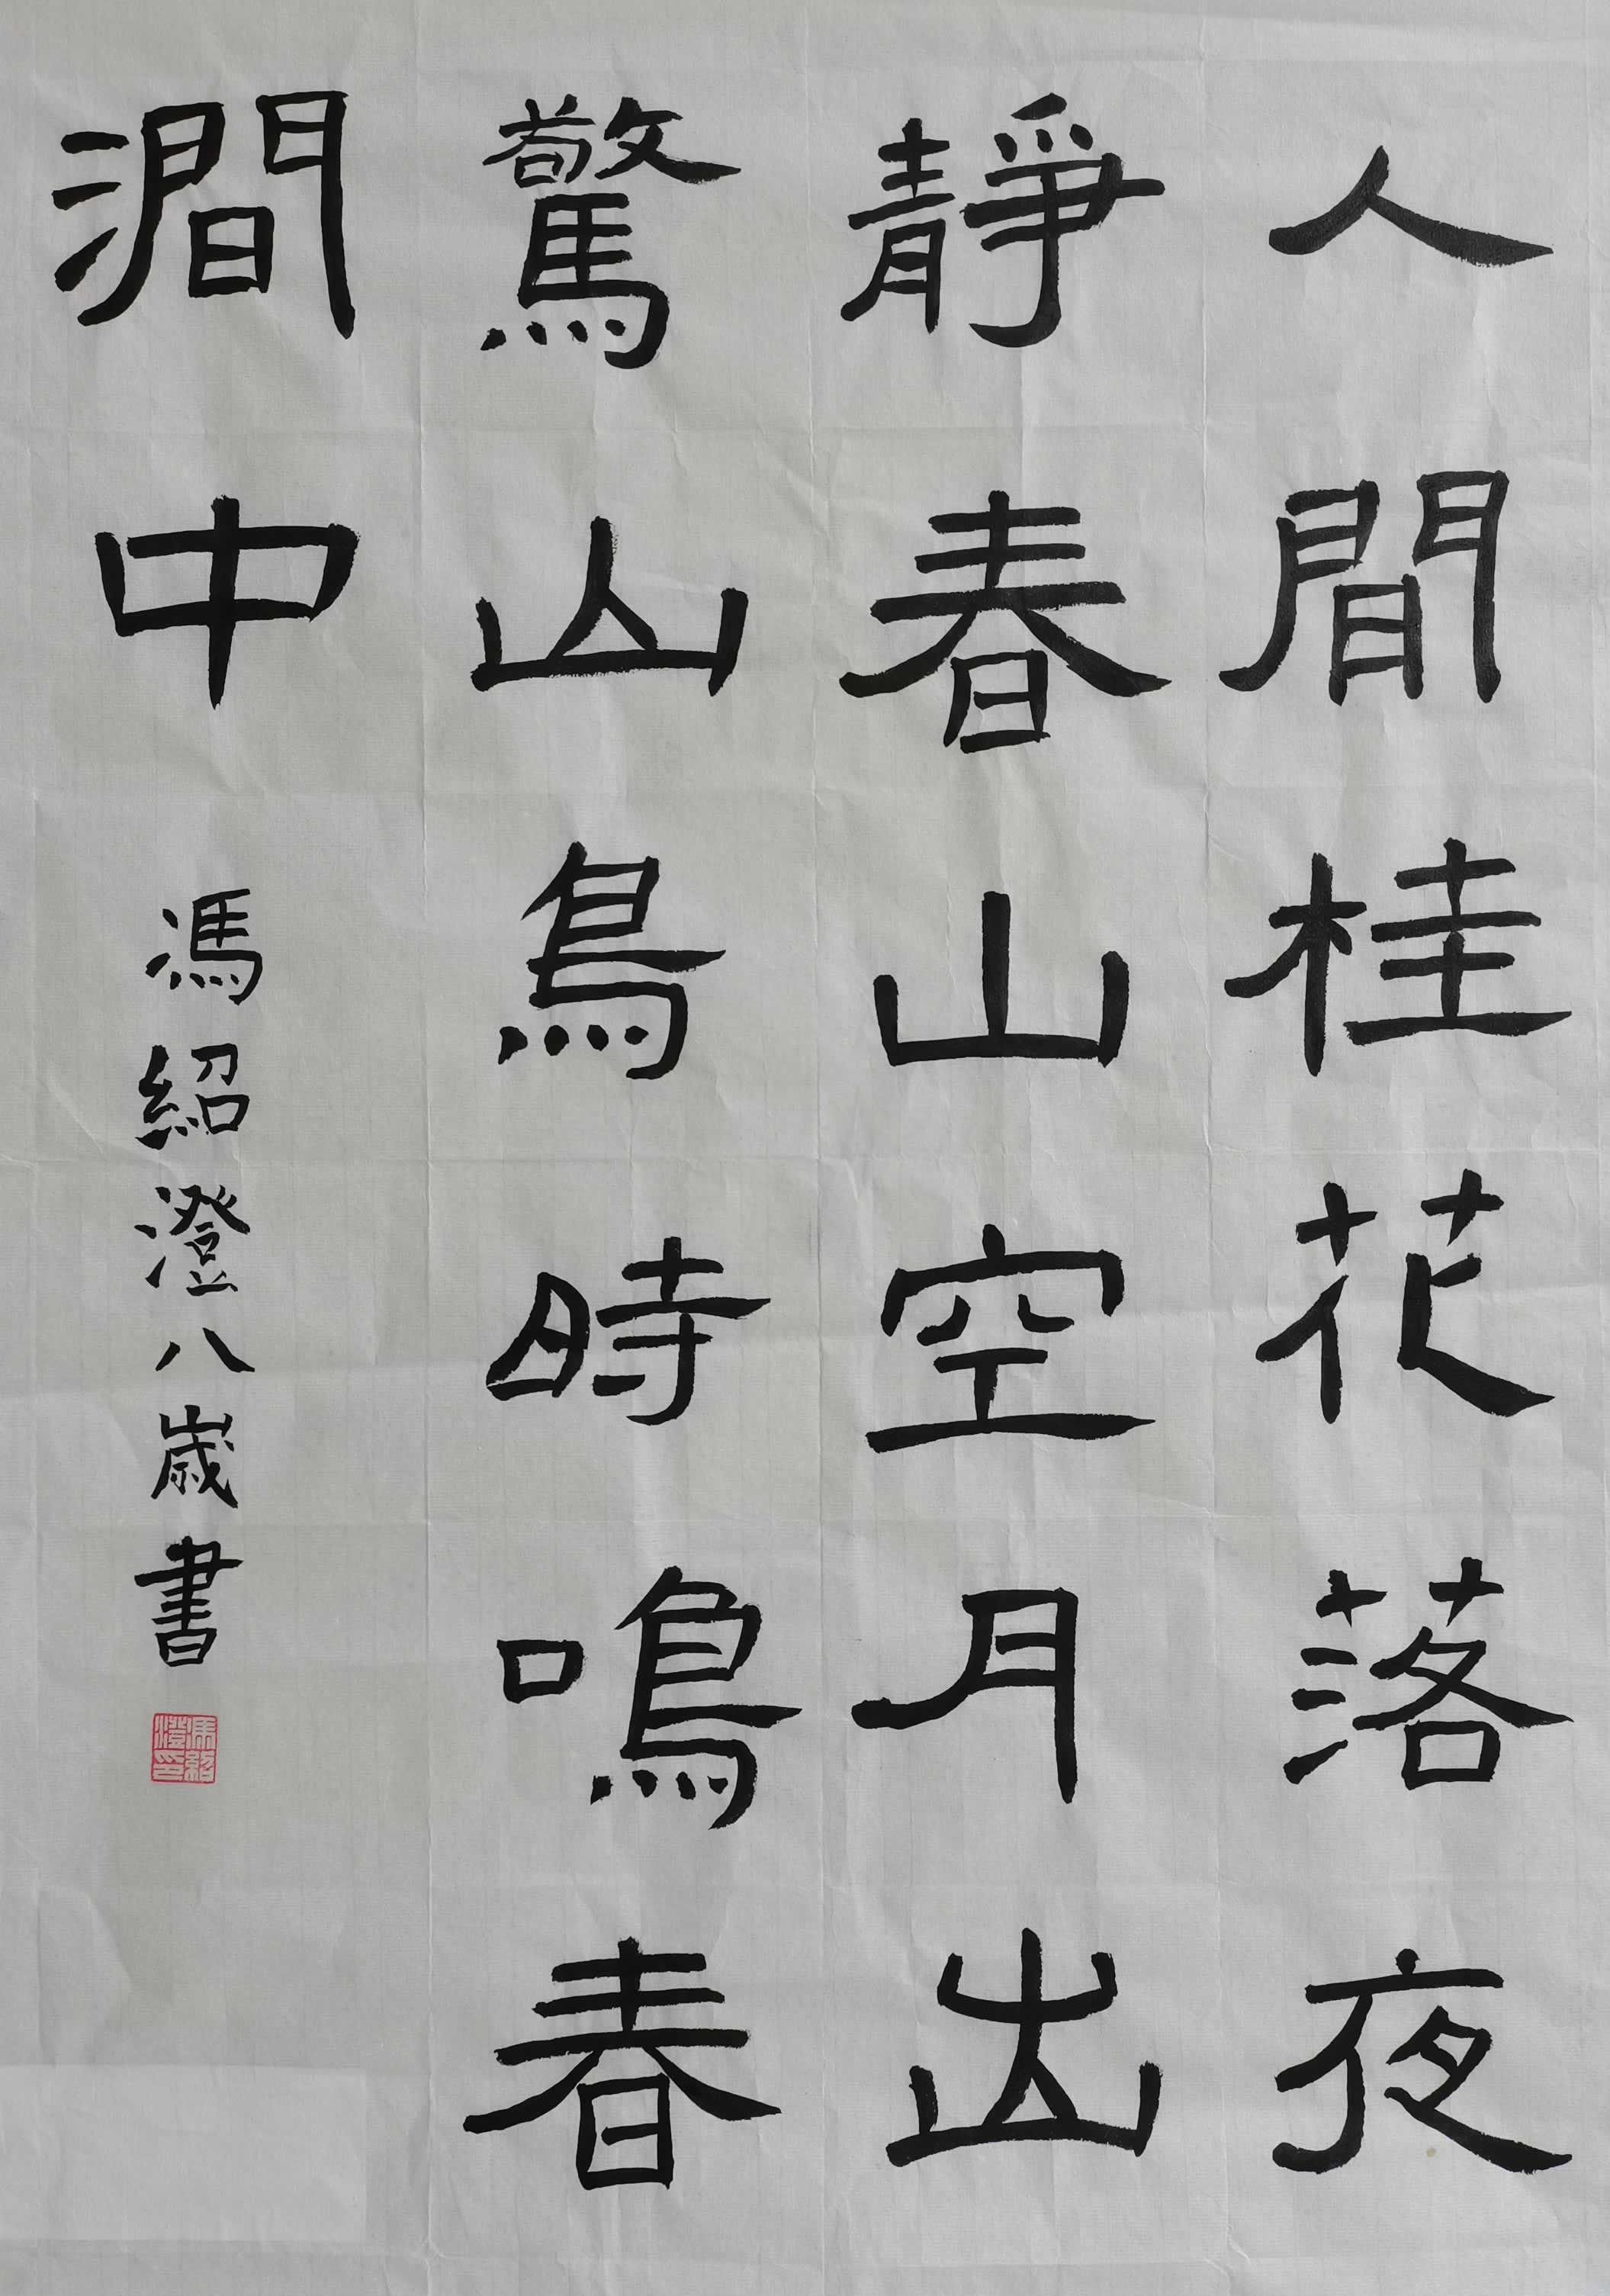 人間桂花落夜
靜春山空月出
驚山鳥時鳴春
澗中
馮紹澄八歲書
馮紹澄印